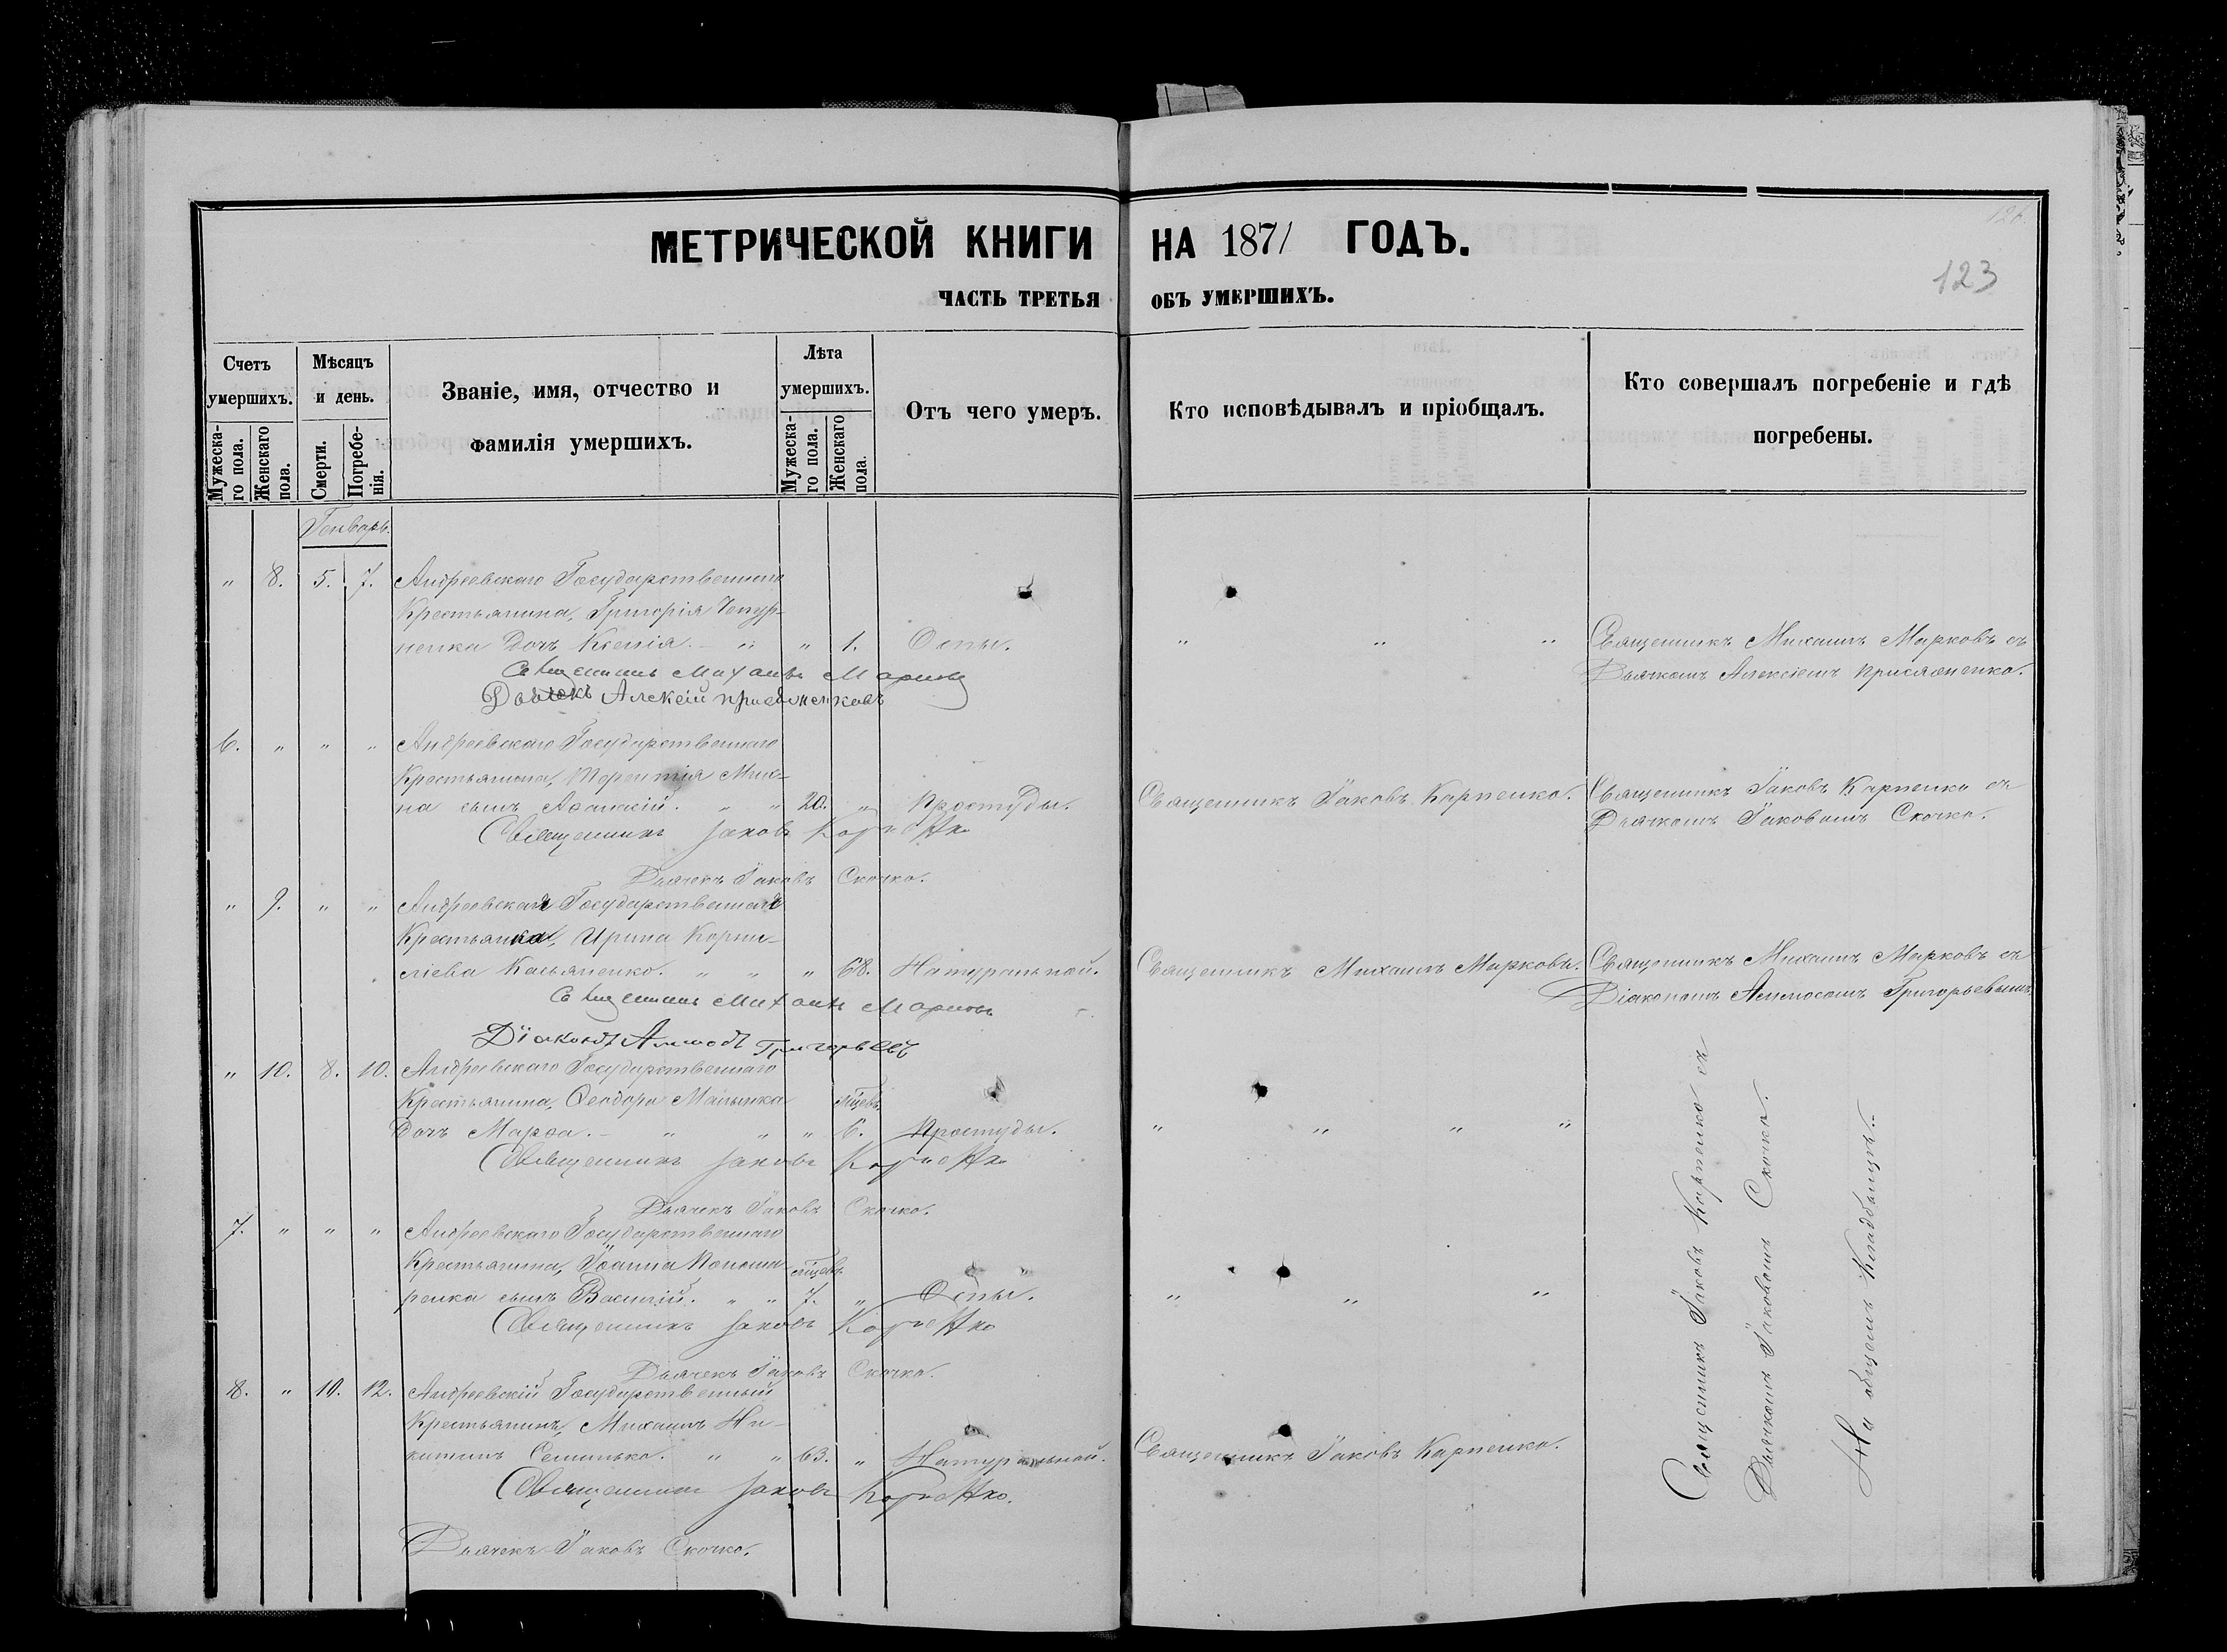 МЕТРИЧЕСКОЙ КНИГИ НА 1871 ГОДЪ.
123
ЧАСТЬ ТРЕТЬЯ ОБЪ УМЕРШИХЪ.
Счетъ умершихъ.
Мужеска-го пола.
Женскаго пола.
Мѣсяцъ и день.
Смерти.
Погребе-нія.
Званіе, имя, отчество и фамилія умершихъ.
Лѣта умершихъ.
Мужеска-го пола.
Женскаго пола.
Отъ чего умеръ.
Кто исповѣдывалъ и пріобщалъ.
Кто совершалъ погребеніе и гдѣ погребены.
Генварь.
" 8. 5. 7. Андреевскаго Государственнаго
Крестьянина, Григорія Чепур-
ненка дочь Ксенія. " " 1. Оспы. " " " Священникъ Михаилъ Марковъ съ
Дьячкомъ Алексіемъ Присяженко.
Священникъ Михаилъ Марковъ
Дьячекъ Алексій
6. " " " Андреевскаго Государственнаго
Крестьянина, Терентія Мих-
на сынъ " " 20. " Простуды. Священникъ Іаковъ Карпенко. Священникъ Іаковъ Карпенко съ
Дьячкомъ Іаковомъ Скочко.
Священникъ Іаковъ Карпенко
Дьячекъ Іаковъ Скочко.
" 9. " " Андреевская Государственная
Крестьянка, Ирина Корни-
ліева Касьяненко. " " " 68. Натуральной. Священникъ Михаилъ Марковъ. Священникъ Михаилъ Марковъ съ
Діакономъ Григорьевымъ.
Священникъ Михаилъ Марковъ
Діаконъ Григорьевъ
" 10. 8. 10. Андреевскаго Государственнаго
Крестьянина, Ѳеодора
мѣсцевъ
Дочь Марѳа. " " " 6. Простуды. " " " "
Священникъ Іаковъ Карпенко
Дьячекъ Іаковъ Скочко.
7. " " " Андреевскаго Государственнаго
Крестьянина, Іоанна Понома-
мѣсцевъ
ренка сынъ Василій. " " 7. " Оспы. " " "
Священникъ Іаковъ Карпенко
Дьячекъ Іаковъ Скочко.
8. " 10. 12. Андреевскій Государственный
Крестьянинъ, Михаилъ Ни-
китинъ Семинько. " " 63. " Натуральной. Священникъ Іаковъ Карпенко.
Священникъ Іаковъ Карпенко.
Дьячекъ Іаковъ Скочко.
Священникъ Іаковъ Карпенко съ
Дьячкомъ Іаковомъ Скочко.
На общемъ Кладбищѣ.